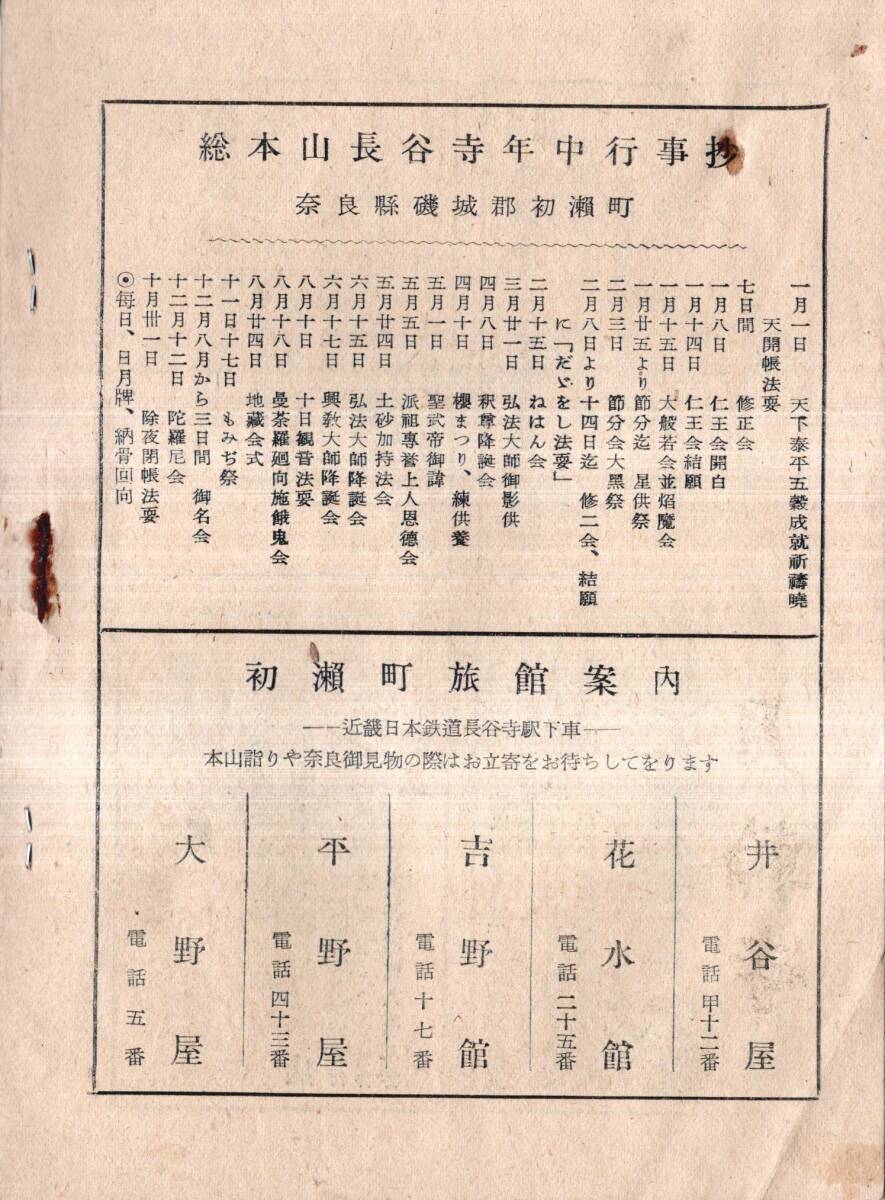 総本山長谷寺年中行事抄
奈良縣磯城郡初瀬町
一月一日　天下泰平五穀成就祈禱曉
天開帳法要
七日間　修正会
一月八日　仁王会開白
一月十四日　仁王会結願
一月十五日　大般若会並焰魔会
一月廿五より節分迄　星供祭
二月三日　節分会大黒祭
二月八日より十四日迄　修二会、結願
に「だゞをし法要」
二月十五日　ねはん会
三月廿一日　弘法大師御影供
四月八日　釈尊降誕会
四月十日　櫻まつり、練供養
五月一日　聖武帝御諱
五月五日　派祖專誉上人恩德会
五月廿四日　土砂加持法会
六月十五日　弘法大師降誕会
六月十七日　興教大師降誕会
八月十日　十日観音法要
八月十八日　曼荼羅廻向施餓鬼会
八月廿四日　地藏会式
十一日十七日　もみぢ祭
十二月八月から三日間　御名会
十二月十二日　陀羅尼会
十月卅一日　除夜閉帳法要
◉每日、日月牌、納骨回向
初瀬町旅館案内
――近畿日本鉄道長谷寺駅下車――
本山詣りや奈良御見物の際はお立寄をお待ちしてをります
井谷屋
電話甲十二番
花水館
電話二十五番
吉野館
電話十七番
平野屋
電話四十三番
大野屋
電話五番